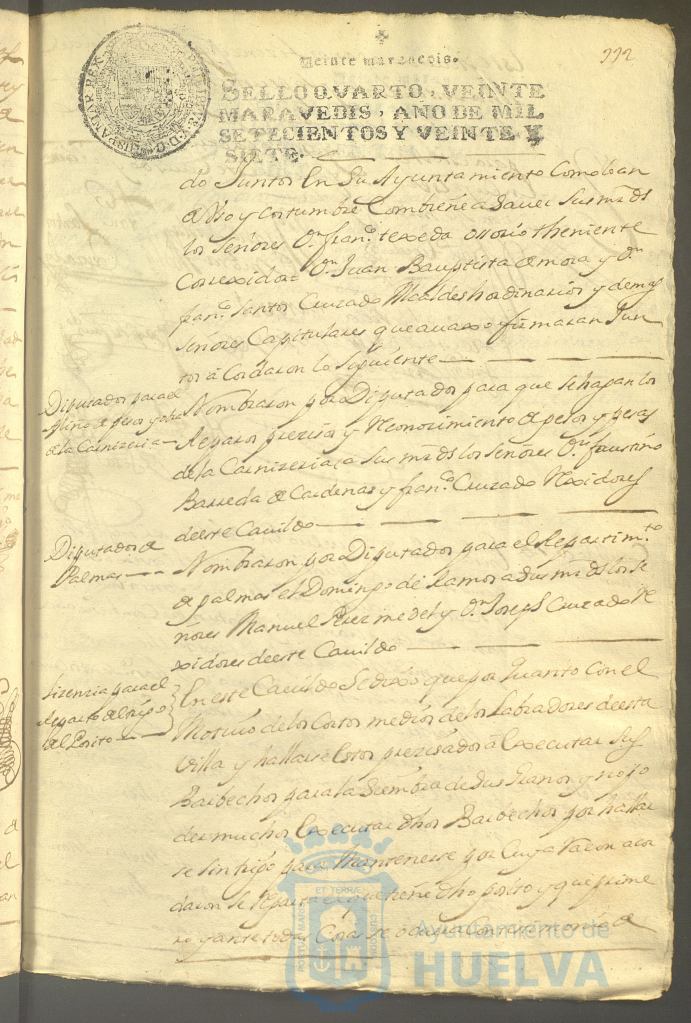 Veinte maravedis.
SELLO QVARTO, VEINTE
MARAVEDIS, AÑO DE MIL
SETECIENTOS Y VEINTE Y
SIETE.
do Juntos En Su Ayuntamiento Como lo an
de Vso y costumbre Combiene a Sauer Sus mrds
los Señores Dn franco texeda ossorio theniente
Correxidor Dn Juan Bauptista de mora y Dn
franco Santos Cruzado Alcaldes hordinarios y demas
Señores Capitulares que auaxo firmaran Jun
tos aCordaron lo Siguiente
Diputados para el
de peso y obra
de la Carniceria
Nombraron por Diputados para que se hagan los
Reparos precisos y Reconocimiento de pesos y pesas
de la Carniceria a Sus mrds los Señores Dn faustino
Barreda de Cardenas y franco Cruzado Rexidores
deeste Cauildo
Diputados de
Palmas
Nombraron por Diputados para el Repartimto
de palmas el Domingo de Ramos a Sus mrds los Se
ñores Manuel Perez medel y Dn Joseph Cruzado Re
xidores deeste Cauildo
Lizencia para el
Reparto del trigo
del Posito
En este Cauildo Se dixo que por Quanto Con el
Motiuo de los Cortos medios de los Labradores deesta
Villa y hallarse Estos prezisados à Executar Sus
Barbechos para la Siembra de Sus Granos y no po
der muchos Executar dhos Barbechos por hallar
se Sin trigo para Mantenerse por Cuya razon acor
daron Se Reparta el que tiene dho posito y que prime
ro y ante todas Cosas Se
Ayuntamiento de
HUELVA